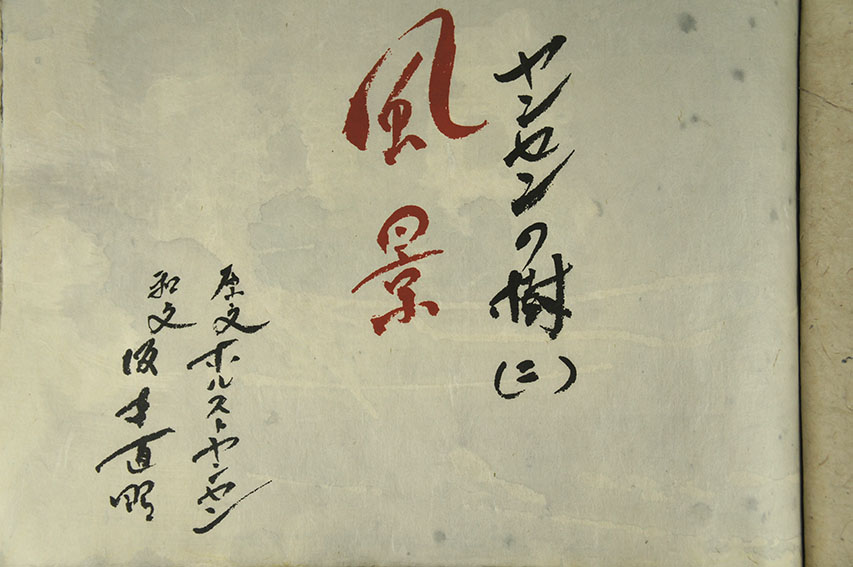 ヤンセンの樹(二)
風景
原文ホルストヤンセン
和文坂本直昭